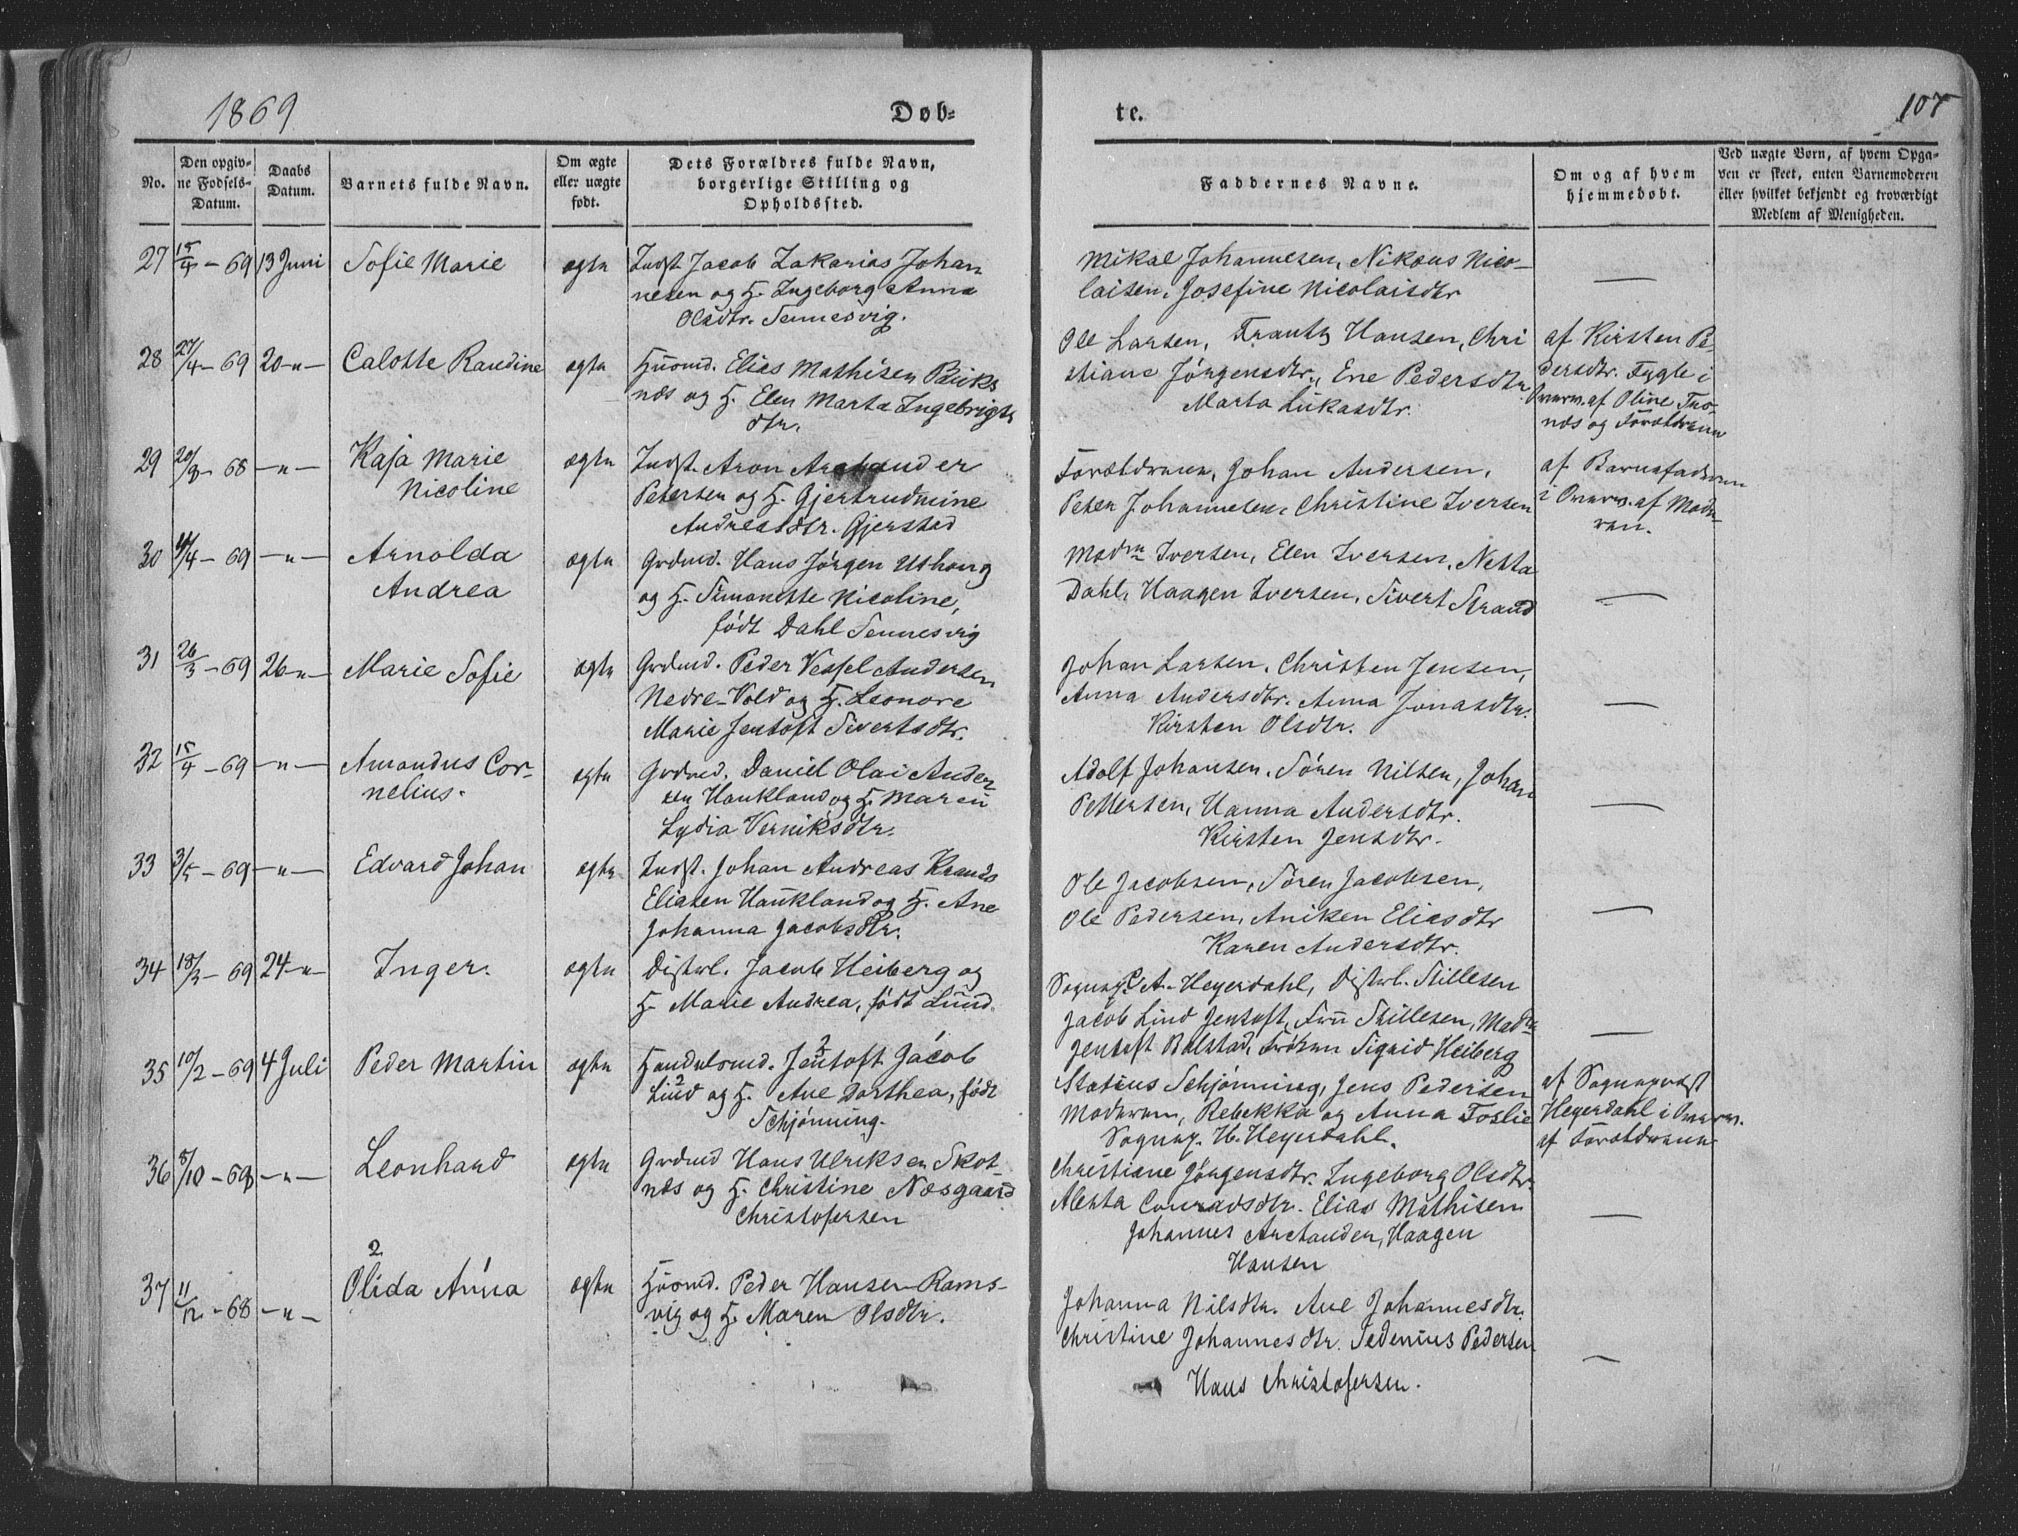 1869
Døb-
te.
107
No.
Den opgiv-
ne Fødsels-
Datum.
Daabs
Datum.
Barnets fulde Navn.
Om ægte
eller uægte
født.
Dets Forældres fulde Navn,
borgerlige Stilling og
Opholdssted.
Faddernes Navne.
Om og af hvem
hjemmedøbt.
Ved uægte Børn, af hvem Opga-
ven er skeet, enten Barnemoderen
eller hvilket bekjendt og troværdigt
Medlem af Menigheden.
27 15/4 - 69 13 Juni Sofie Marie ægte Indst. Jacob Zakarias Johan
nesen og H. Ingeborg Anna
Olsdtr. Sennesvig.
Mikal Johannesen, Nikøus Nico-
laisen, Josefine Nicolaisdtr
—
28 27/4 - 69 20 -"- Calotte Raudine ægte Husmd. Elias Mathisen Buks
næs og H. Elen Marta Ingebrigts
dtr.
Ole Larsen, Frantz Hansen, Chri
stiane Jørgensdtr., Ene Pedersdtr.
Marta Lukasdtr.
af Kirsten Pe-
dersdtr. Fygle i
Overv. af Oline
næs og Forældrene
29 20/3 - 68 -"- Kaja Marie
Nicoline
ægte Indst. Aron Arctander
Petersen og H. Gjertrudmine
Andreasdtr. Gjerstad
Forældrene, Johan Andersen,
Peter Johannesen, Christine Iversen
af Barnefaderen
i Overv. af Mode-
ren.
30 4/4 - 69 -"- Arnolda
Andrea
ægte Grdmd. Hans Jørgen Uthong
og H. Simonette Nicoline,
født Dahl Sennesvig
Madm Iversen, Elen Iversen, Netta
Dahl, Haagen Iversen, Sivert Strand
—
31 26/3 - 69 26 -"- Marie Sofie ægte Grdmd. Peder Vessel Andersen
Nedre-Vold og H. Leonore
Marie Jentoft Sivertsdtr.
Johan Larsen, Christen Jensen,
Anna Andersdtr. Anna Jonasdtr.
Kirsten Olsdtr.
—
32 15/4 - 69 -"- Amandus Cor-
nelius.
ægte Grdmd. Daniel Olai Ander
sen Haukland og H. Maren
Lydia Verniksdtr.
Adolf Johansen, Søren Nilsen, Johan
Pettersen, Hanna Andersdtr.
Kirsten Jensdtr.
—
33 3/5 - 69 -"- Edvard Johan ægte Indst. Johan Andreas
Eliasen Haukland og H. Ane
Johanna Jacobsdtr.
Ole Jacobsen, Søren Jacobsen,
Ole Pedersen, Aniken Eliasdtr
Karen Andersdtr.
—
34 18/3 - 69 24 -"- Inger. ægte Distrl. Jacob Heiberg og
H. Marie Andrea, født Lund.
Sognep. C. A. Heyerdahl, Distrl. Stillesen
Jacob Lind Jentoft, Fru Stillesen, Madm
Jentoft Balstad, Frøken Sigrid Heiberg
—
35 10/2 - 69 4 Juli Peder Martin ægte Handelsmd. Jentoft Jacob
Lind og H. Ane Dorthea, født
Schjønning.
Statius Schjønning, Jens Pedersen
Moderen, Rebekka og Anna Foslie
Sognep. H. Heyerdahl.
af Sogneprest
Heyerdahl i Overv.
af Forældrene
36 5/10 - 68 -"- Leonhard ægte Grdmd Hans Ulriksen Skot-
næs og H. Christine Næsgaard
Christofersen
Christiane Jørgensdtr. Ingeborg Olsdtr.
Alexta Conradsdtr. Elias Mathisen
Johannes Arctander, Haagen
Hansen
—
37 11/12 - 68 -"- 2
Olida Anna ægte Husmd. Peder Hansen Rams-
vig og H. Maren Olsdtr.
Johanna Nilsdtr. Ane Johannesdtr.
Christine Johannesdtr. Sedenius Pedersen
Hans Christofersen.
—